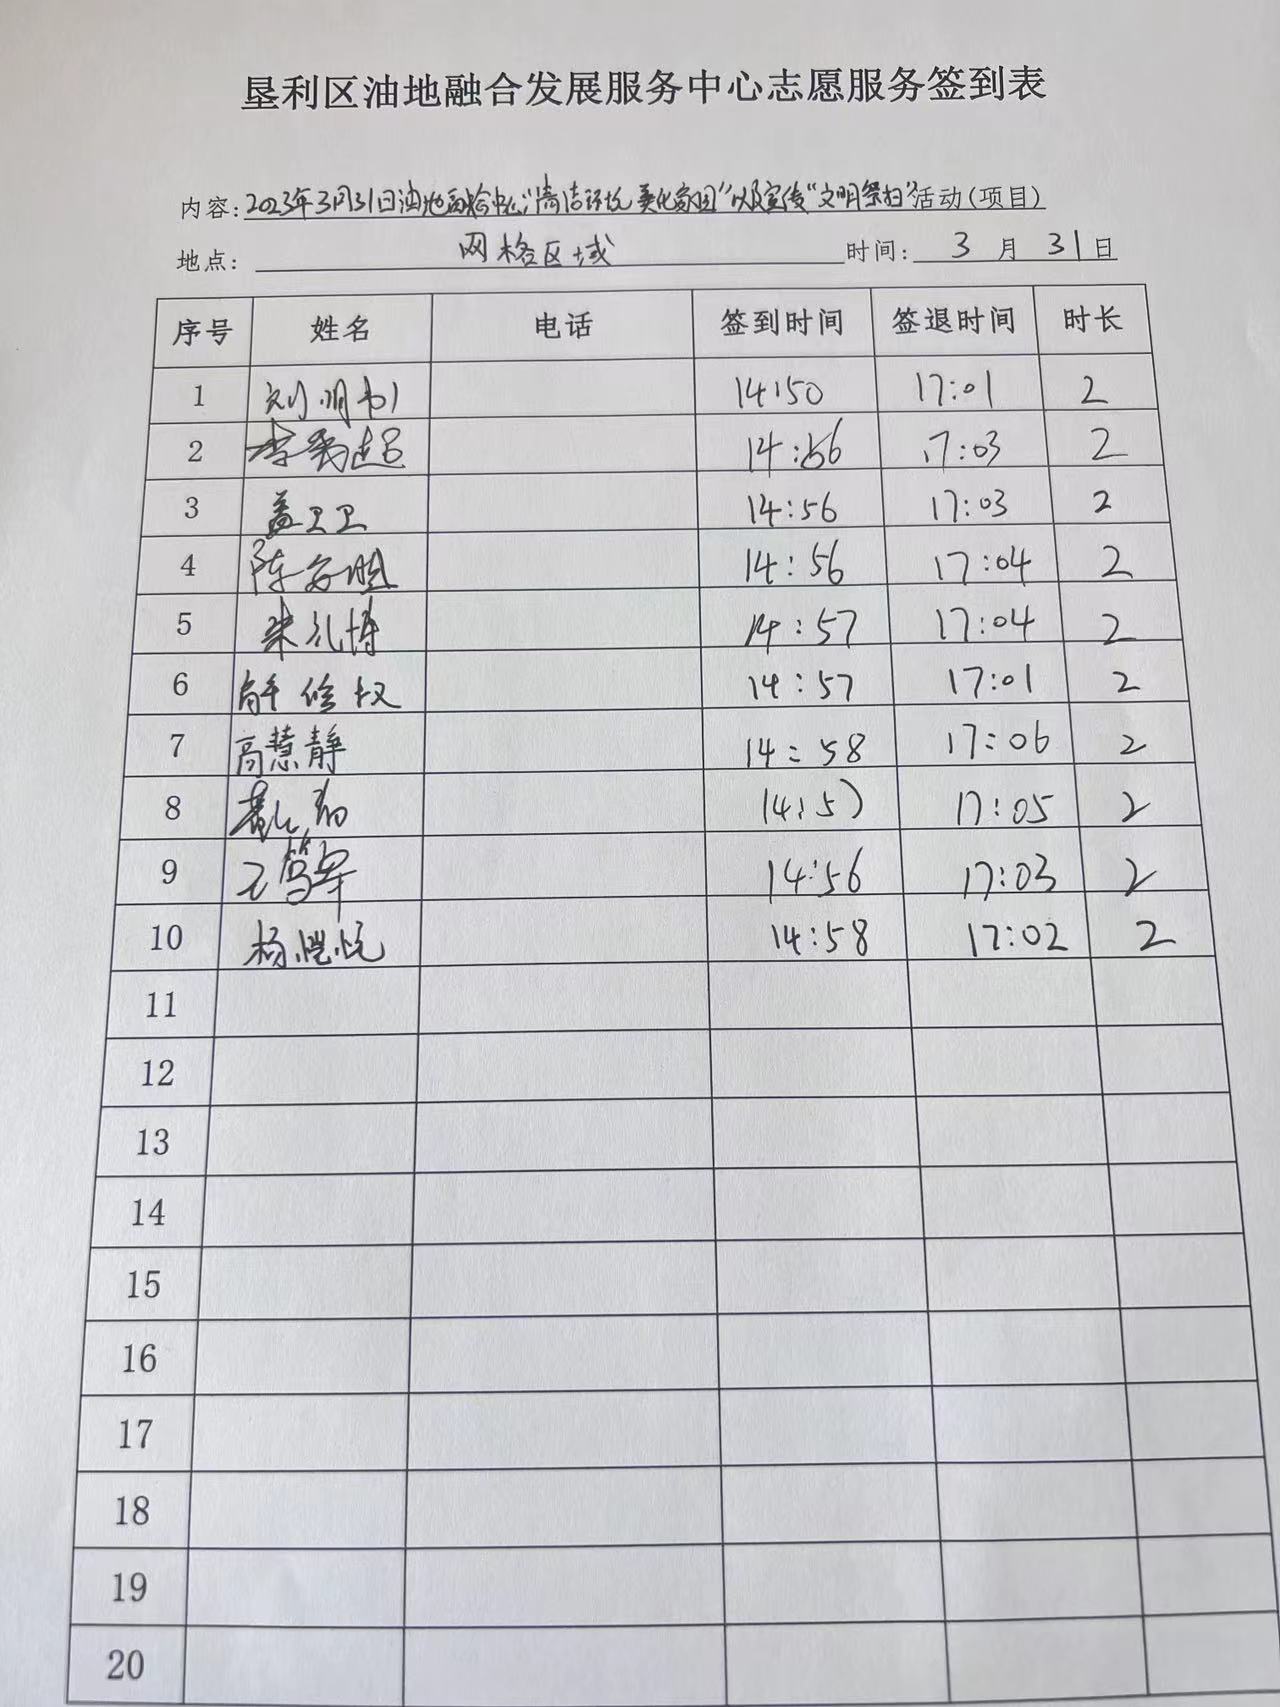 垦利区油地融合发展服务中心志愿服务签到表
内容:2023年3月31日油地融合中心“清洁环境 美化家园”以及宣传“文明祭扫”活动(项目)
地点: 网格区域 时间: 3 月 31 日
序号 姓名 电话 签到时间 签退时间 时长
1 刘明 14:50 17:01 2
2 李 超 14:56 17:03 2
3 盖卫卫 14:56 17:03 2
4 陈 14:56 17:04 2
5 朱礼博 14:57 17:04 2
6 14:57 17:01 2
7 高慧静 14:58 17:06 2
8 14:57 17:05 2
9 王笃军 14:56 17:03 2
10 杨恺悦 14:58 17:02 2
11
12
13
14
15
16
17
18
19
20